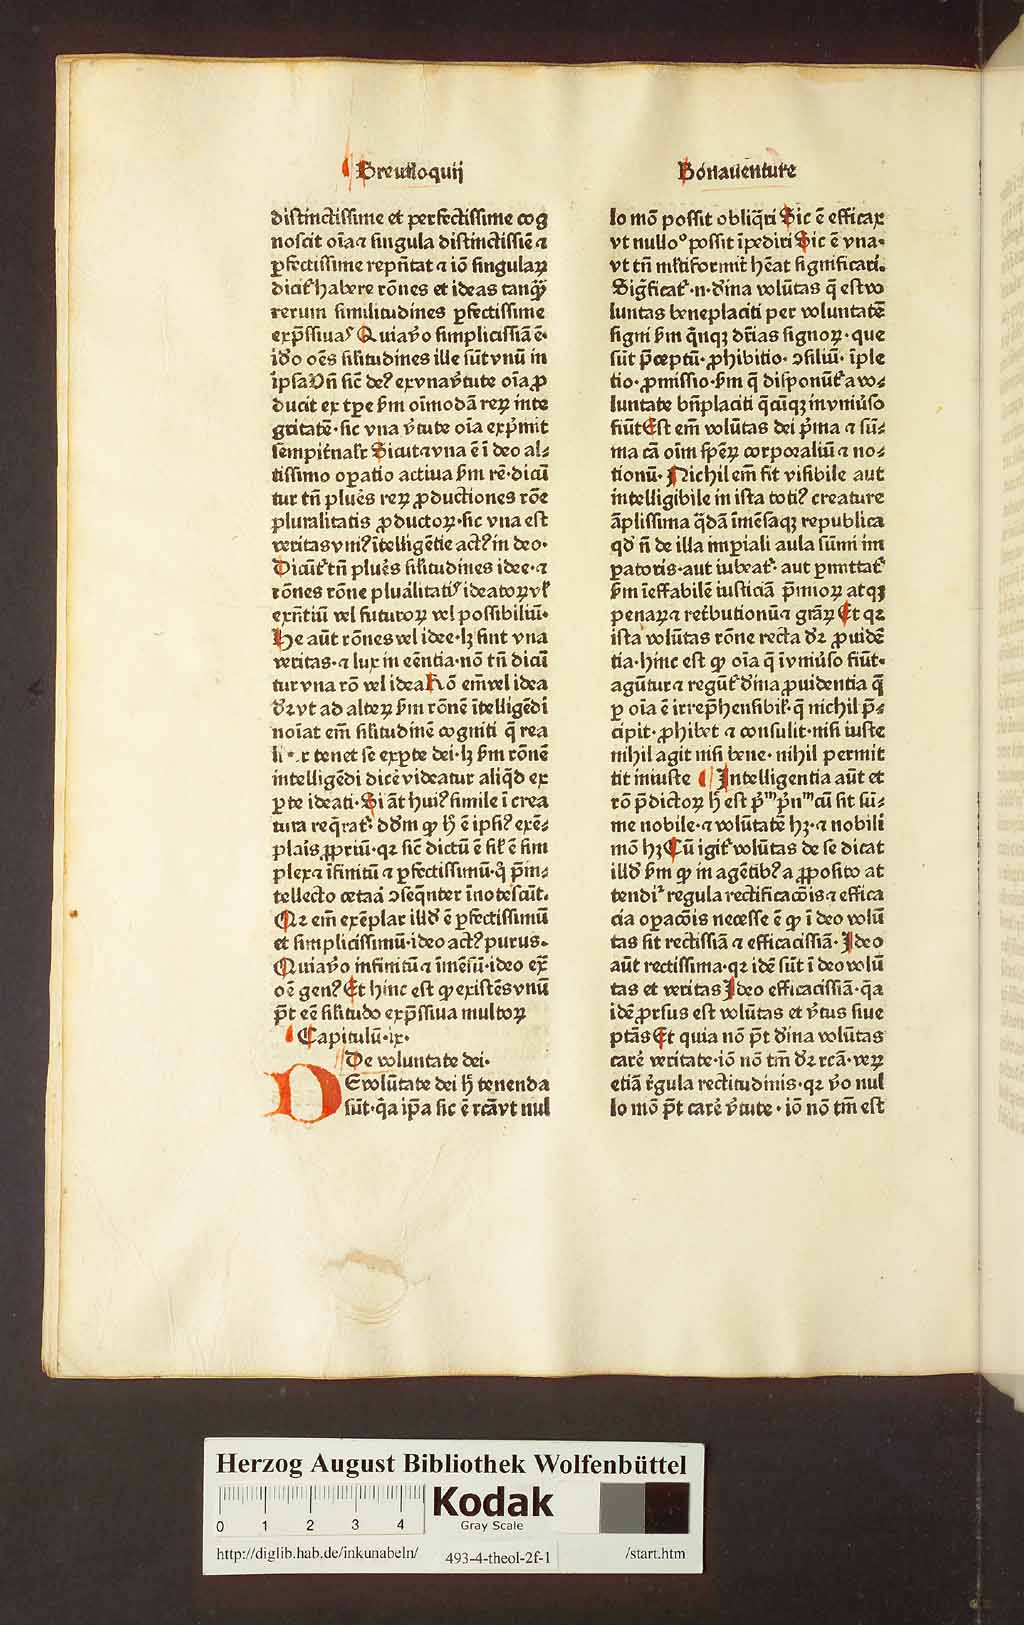 Breuiloquij
Bonauenture
distinctissime et perfectissime cog
noscit oīa ⁊ singula distinctissīe ⁊
ꝑfectissime repn̄tat ⁊ iō singularꝝ
dicit᷑ habere rōnes et ideas tanqᷓꝫ
rerum similitudines ꝑfectissime
exp̄ssiuas Quia v̄o simplicissīa ē·
iđo oēs silitudines ille sūt vnū in
ip̄sa Vn̄ sic̄ deꝰ ex vna v̄tute oīa ꝓ
ducit ex tꝑe ẜm oīmodā reꝝ inte
gritatē· sic vna v̄tute oīa exp̄mit
sempit̄nal̄r Sicut ⁊ vna ē ī deo al⸗
tissimo oꝑatio actiua ẜm rē· dicū
tur tn̄ plues̄ reꝝ ꝓductiones rōe
pluralitatis ꝓductoꝝ· sic vna est
veritas vniꝰ ītelligētie actꝰ in deo·
Dicūt᷑ tn̄ plues̄ silitudines idee· ⁊
rōnes rōne pluralitatis ideatoꝝ vl᷑
exn̄tiū vel futuroꝝ vel possibiliū·
He aūt rōnes vel idee· lꝫ sint vna
veritas· ⁊ lux in eēntia· nō tn̄ dicū
tur vna rō vel idea Rō em̄ vel idea
dꝛ vt ad alterꝝ ẜm rōnē ītelligēdi
noīat em̄ silitudinē cogniti q̄ rea
li·r tenet se ex ꝑte dei· lꝫ ẜm rōnē
intelligēdi dicē videatur aliqd̄ ex
ꝑte ideati· Si āt huiꝰ simile ī crea
tura req̄rat᷑· ddm̄ ꝙ h̄ ē ip̄siꝰ exē⸗
plaris ꝓpriū· qꝛ sic̄ dictū ē sil᷑ ē sim
plex ⁊ īfinitū ⁊ ꝑfectissimū· q̊ p̄in⸗
tellecto cetaā ↄseq̄nter īnotescūt·
Qꝛ em̄ exēplar illđ ē ꝑfectissimū
et simplicissimū· ideo actꝰ purus·
Quia v̄o infinitū ⁊ īmēsū· ideo ex̄
oē genꝰ Et hinc est ꝙ existēs vnū
p̄t eē silitudo exp̄ssiua multoꝝ
Capitulū· ix·
De voluntate dei·
DE volūtate dei h̄ tenenda
sūt· q̄a ip̄a sic ē rcā vt nul
lo mō possit obliq̄ri Sic ē efficax
vt nulloº possit īpediri Sic ē vna·
vt tn̄ ml̄tiformit̄ hēat significari·
Significat᷑·n·diīna volūtas q̄ est vo
luntas beneplaciti per voluntatē
signi ẜm qnqꝫ dr̄ias signoꝝ· que
sūt p̄ceptū· ꝓhibitio· ↄsiliū· īple
tio· ꝑmissio· ẜm q̄ disponūt᷑ a vo⸗
luntate bn̄placiti q̄cūqꝫ in vniūso
fiūt Est em̄ volūtas dei p̄ma ⁊ sū⸗
ma cā oīm speꝝ corporaliū ⁊ no⸗
tionū· Nichil em̄ fit visibile aut
intelligibile in ista totiꝰ creature
āplissima q̄dā īmēsaqꝫ republica
qđ n̄ de illa imꝑiali aula sūmi im
ꝑatoris· aut iubeat᷑· aut ꝑmittat᷑
ẜm īeffabilē iusticiā p̄mioꝝ atqꝫ
penaꝝ ⁊ ret̄butionū ⁊ grāꝝ Et qꝛ
ista volūtas rōne recta dꝛ ꝓuidē
tia· hinc est ꝙ oīa q̄ ī vniūso fiūt·
agūtur ⁊ regūt᷑ diīna ꝓuidentia q̄
ꝑ oīa ē irrep̄hensibil᷑· q̄ nichil p̄⸗
cipit· ꝓhibet ⁊ consulit· nisi iuste
nihil agit nisi bene· nihil permit
tit iniuste Intelligentia aūt et
rō p̄dictoꝝ h̄ est p̄ᵐ p̄nᵐ cū sit sū⸗
me nobile· ⁊ volūtatē hꝫ· ⁊ nobili
mō hꝫ Cū igit᷑ volūtas de se dicat
illđ ẜm ꝙ in agētibꝰ a ꝓposito at
tendiꝛ regula rectificacōis ⁊ effica
cia oꝑacōis necesse ē ꝙ ī deo volū
tas sit rectissīa ⁊ efficacissīa· Ideo
aūt rectissima· qꝛ idē sūt ī deo volū
tas et veritas Ideo efficacissīa· q̄a
idē ꝓrsus est volūtas et v̄tus siue
ptās Et quia nō p̄t diīna volūtas
carē veritate· iō nō tm̄ dꝛ rcā· veꝝ
etiā r̄gula rectitudinis· qꝛ v̄o nul
lo mō p̄t carē v̄tute· iō nō tm̄ est
Herzog August Bibliothek Wolfenbüttel
0 1 2 3 4
Kodak
Gray Scale
http://diglib.hab.de/inkunabeln/ 493-4-theol-2f-1 /start.htm